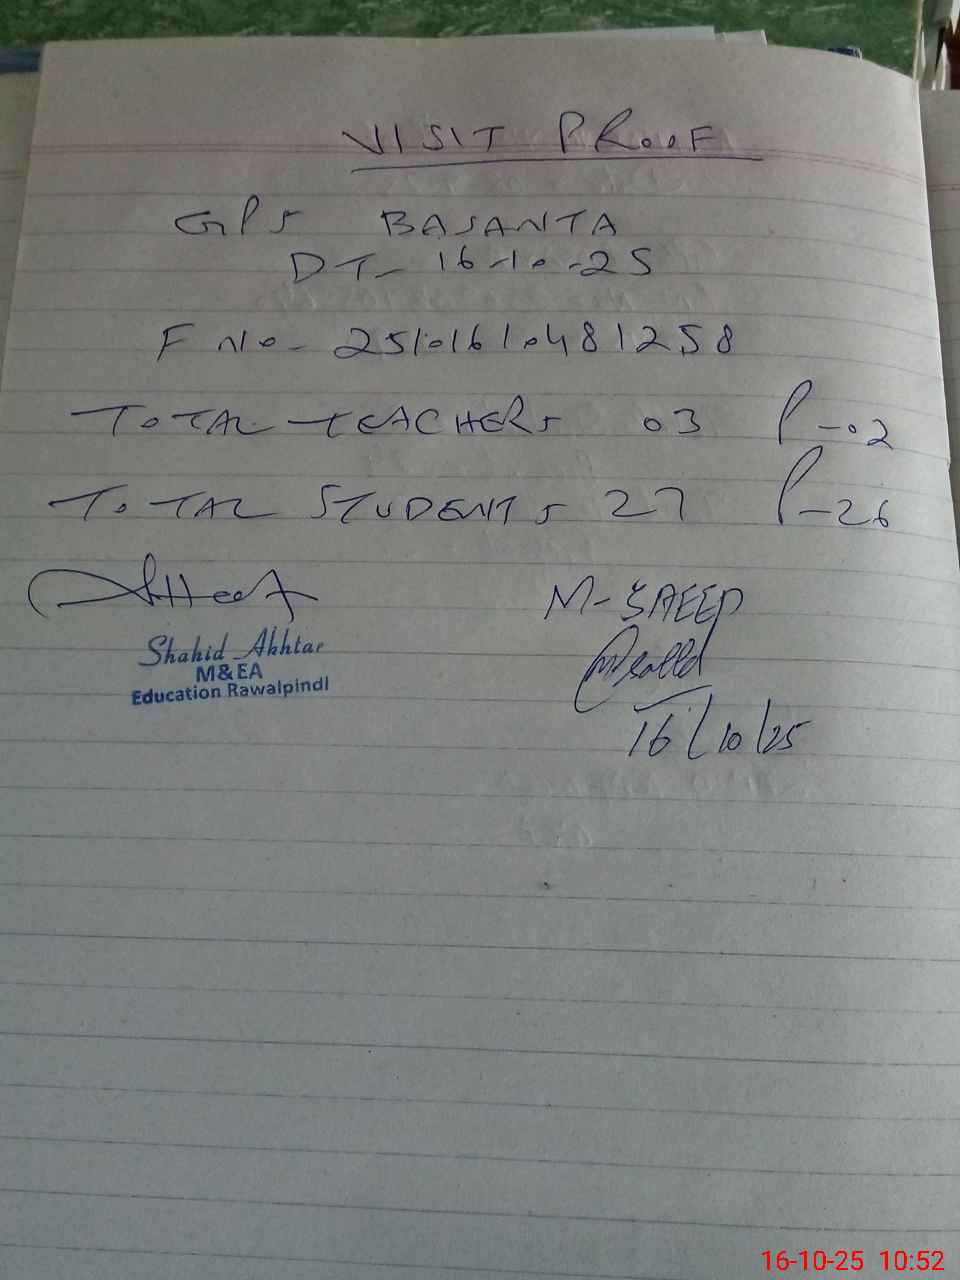 VISIT PROOF
GPS BASANTA
DT- 16-10-25
F No- 25101610481258
TOTAL TEACHERS 03 P-02
TOTAL STUDENTS 27 P-26
Shahid Akhtar
M&EA
Education Rawalpindi
M-SAEED
16/10/25
16-10-25 10:52